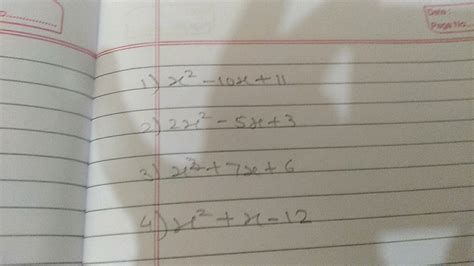 Date:
Page No.
1) x² - 10x + 11
2) 2x² - 5x + 3
3) x² + 7x + 6
4) x² + x - 12